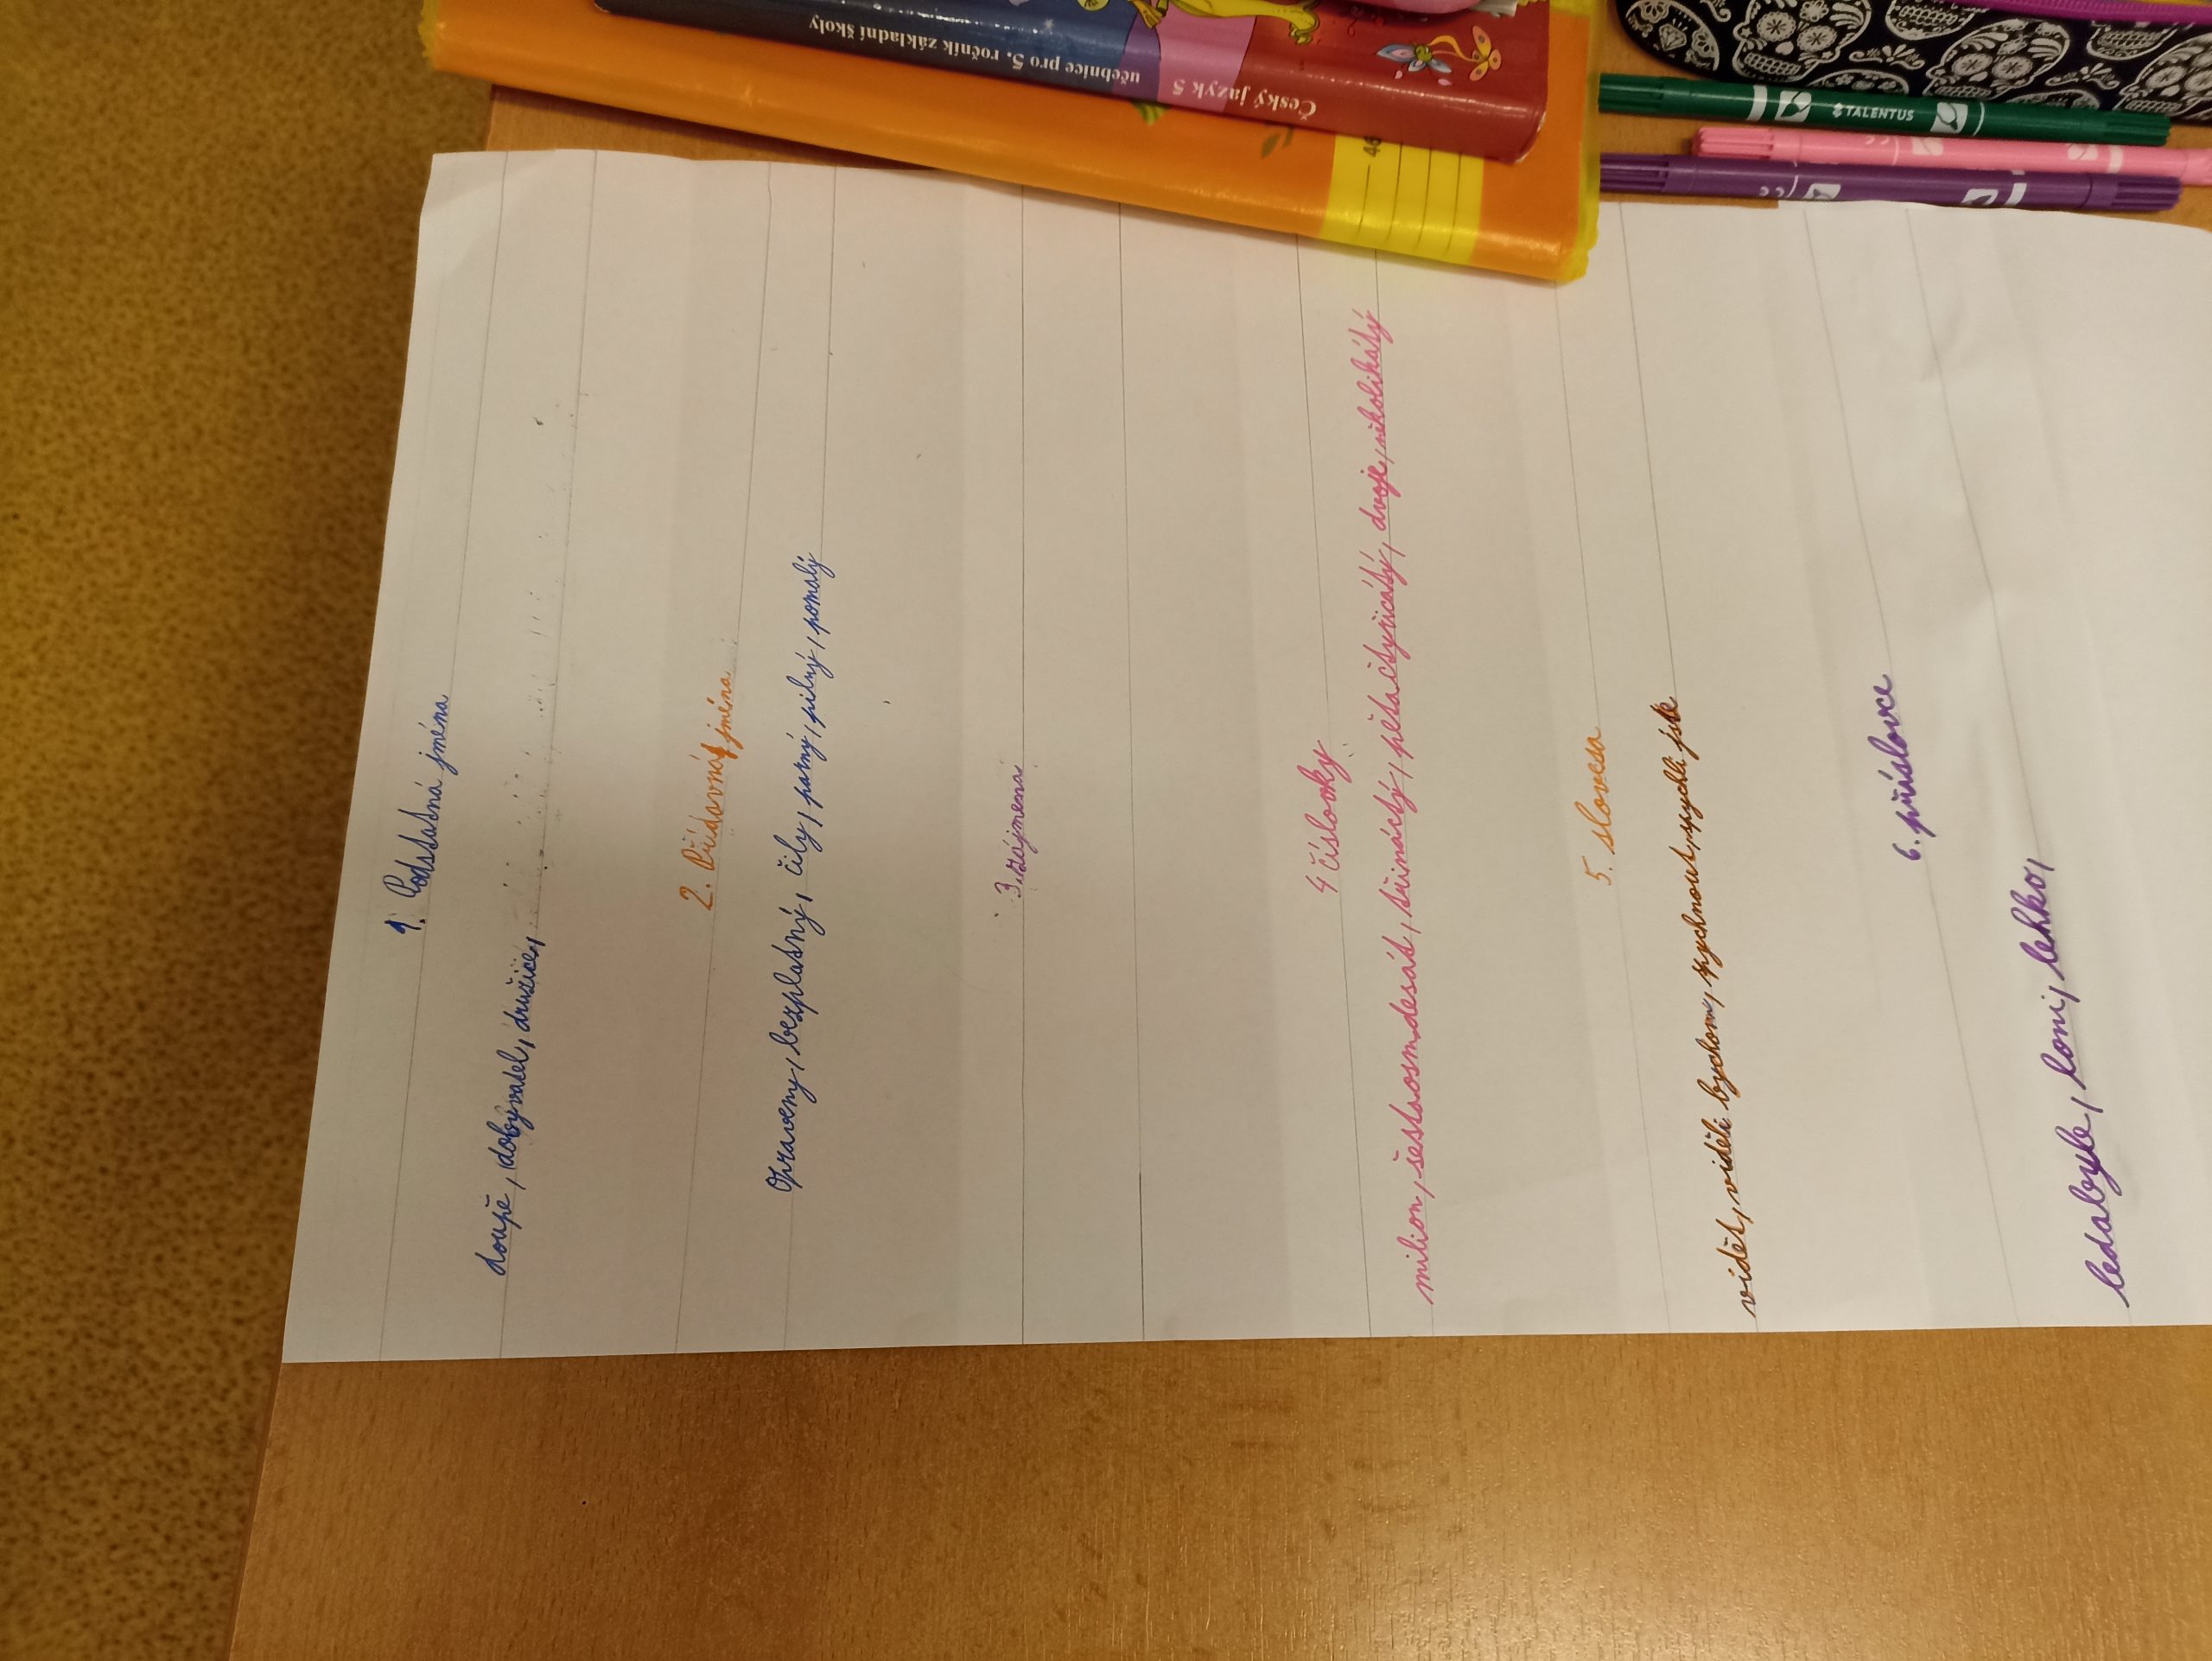 učebnice pro 5. ročník základní školy
Český jazyk 5
46
TALENTUS
1. Podstatná jména
doupě, dobyvatel, družice,
2. Přídavná jména
Opraveny, bezplatný, čilý, parný, pilný, pomalý
3. zájmena
4 číslovky
milion, šestaosmdesát, třináctý, pětačtyřicátý, dvoje, několikátý
5. slovesa
vidět, viděli bychom, zpychnout, zpychli jste
6. příslovce
ledabyle, loni, lehko,